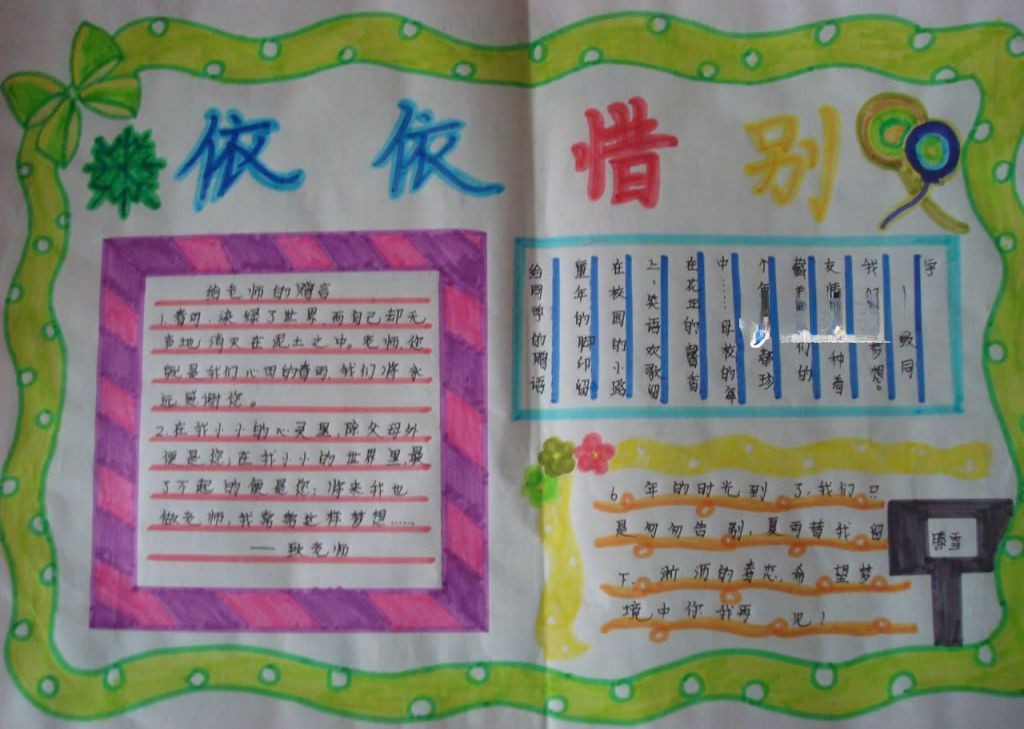 依依惜别
给老师的赠言
1.春雨,染绿了世界,而自己却无
声地消灭在泥土之中。老师,您
就是我们心田的春雨,我们将永
远感谢您。
2.在我小小的心灵里,除父母外
便是您;在我小小的世界里,最
了不起的便是您;将来我也
做老师,我常常这样梦想……
——致老师
给同学的赠语
童年的脚印留
在校园的小路
上,笑语欢歌留
在花坛的留香
中……母校的年
个 都珍
藏 们的
友情 种着
我们 梦想。
——致同
学
6年的时光到了,我们只
是匆匆告别,夏雨替我留
下 淅沥的眷恋,希望梦
境中你我再见!
滕雪